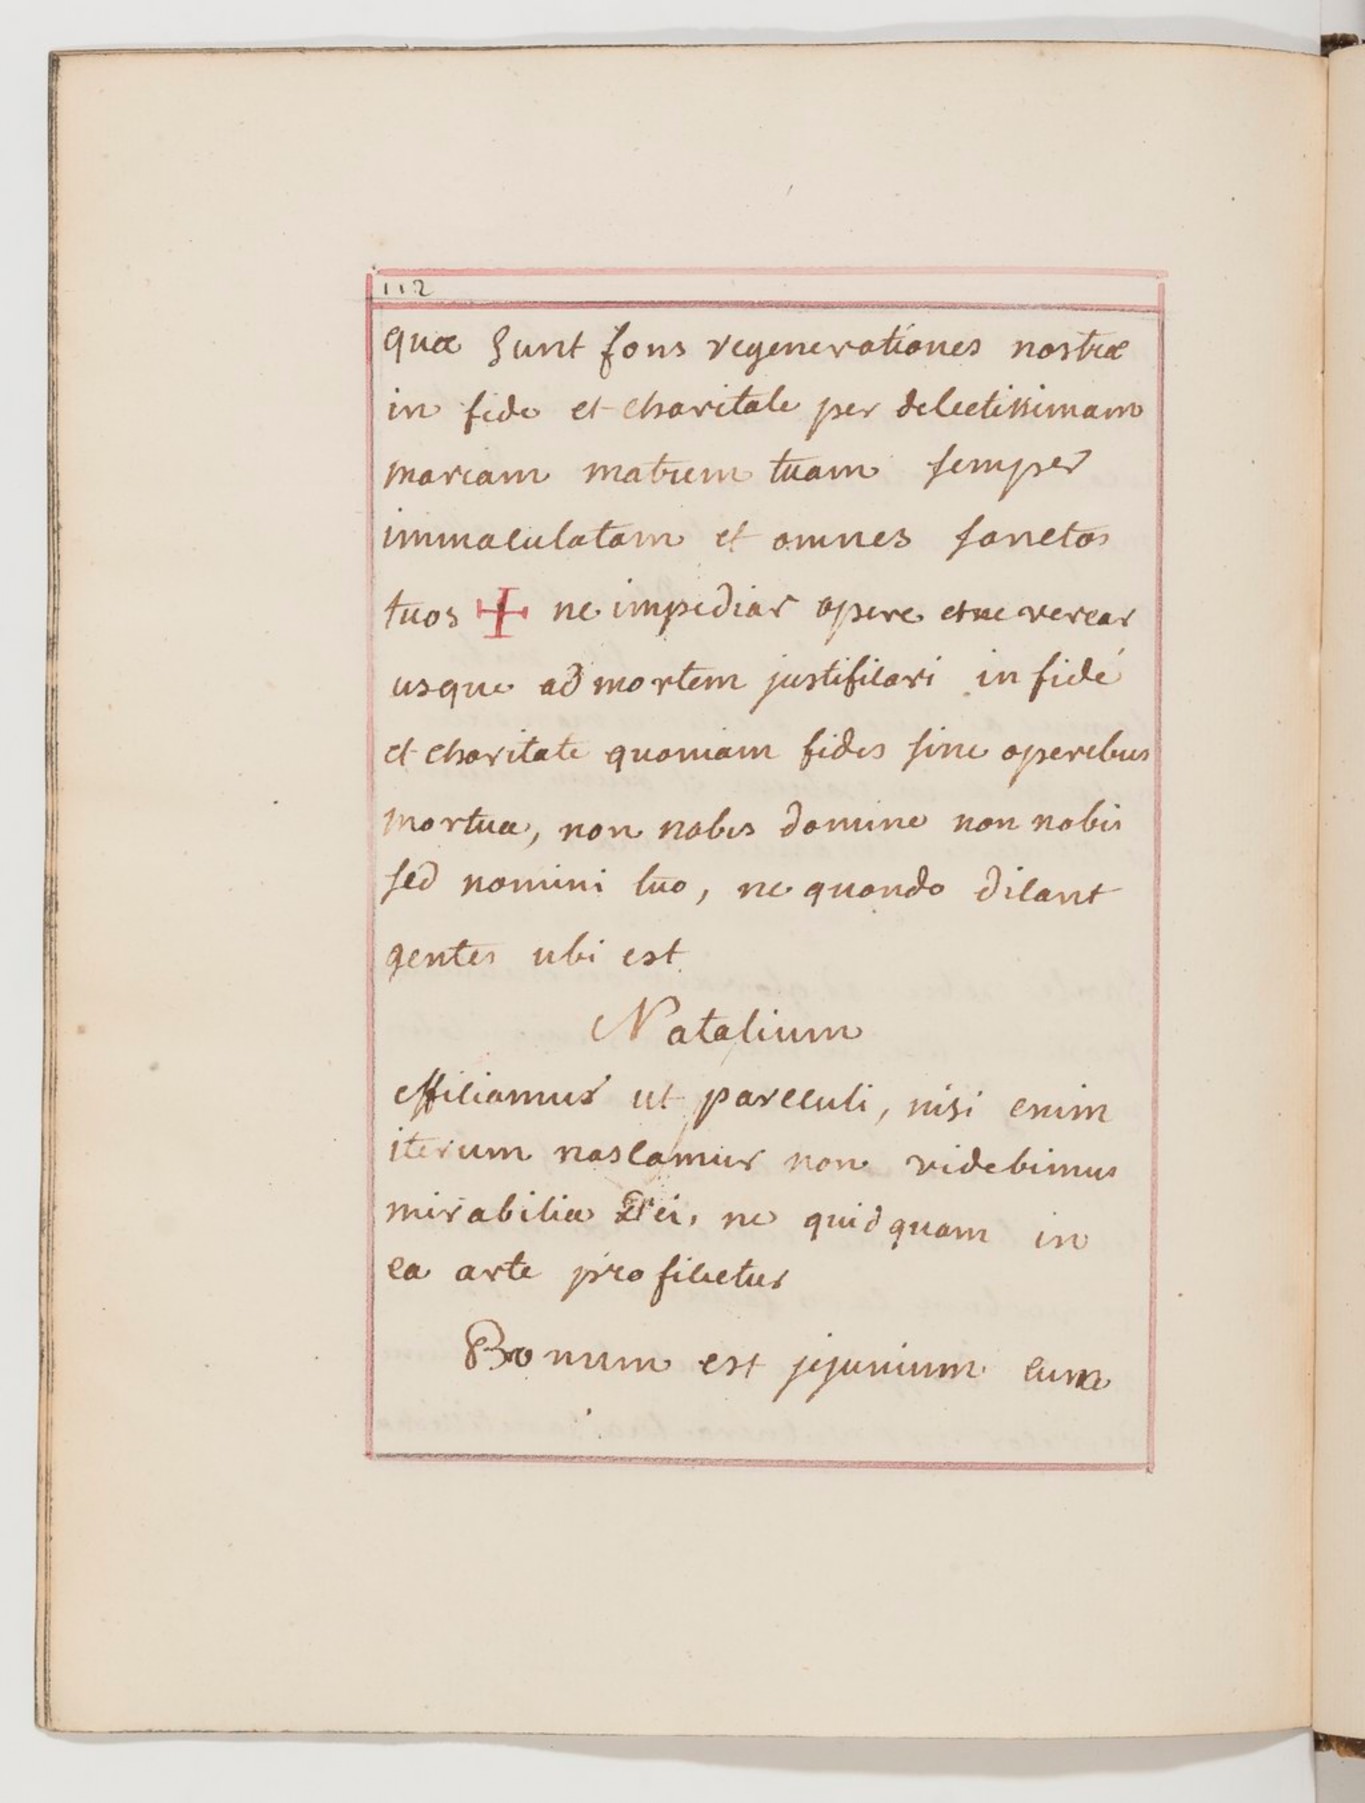 112
quæ sunt fons regenerationes nostræ
in fide et charitate per delectissimam
mariam matrem tuam semper
immaculatam et omnes sanctos
tuos ✝ ne impediar opere et ne verear
usque ad mortem justificari in fidé
et charitate quoniam fides sine operebus
mortua, non nobis domine non nobis
sed nomini tuo, ne quando dicant
gentes ubi est
Natalium
efficiamur ut parcculi, nisi enim
iterum nascamur non videbimus
mirabilia Dei, ne quidquam in
ea arte proficietur
Bonum est jejunium cum